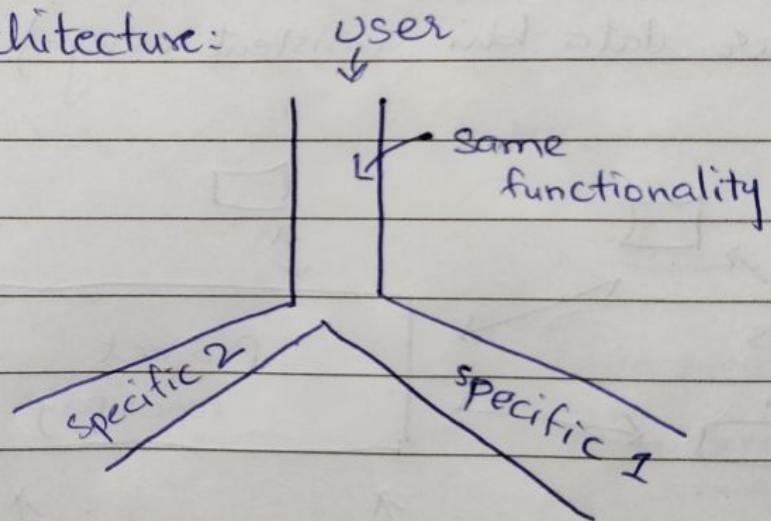 hitecture: User
same
functionality
specific 2
specific 1